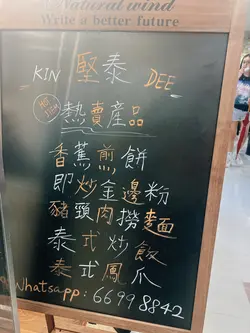 Natural wind
Write a better future
KIN 堅泰 DEE
熱賣產品
香蕉煎餅
即炒金邊粉
豬頸肉撈麵
泰式炒飯
泰式鳳爪
Whatsapp: 6699 8842